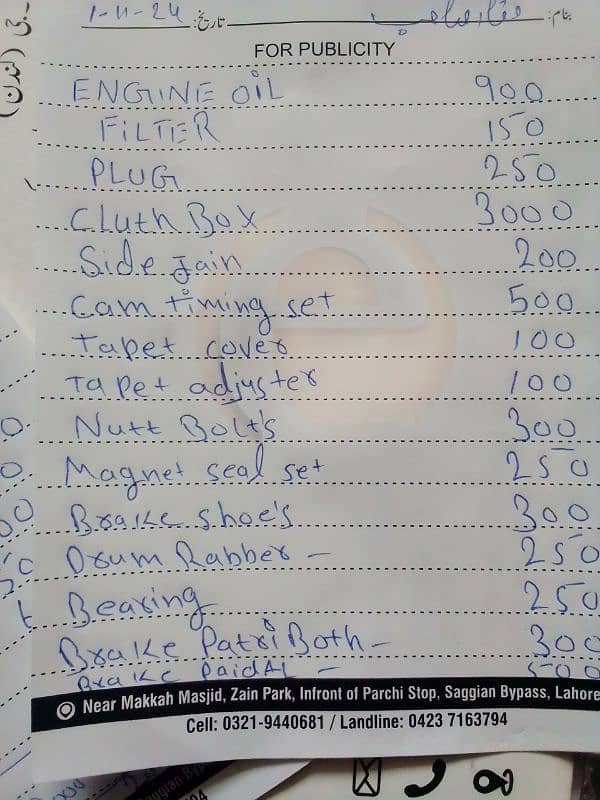 1-11-24 تاریخ: بنام:
FOR PUBLICITY
ENGINE OIL 900
FILTER 150
PLUG 250
Cluth Box 3000
Side Jain 200
Cam timing set 500
Tapet cover 100
Tapet adjuster 100
Nutt Bolt's 300
Magnet seal set 250
Brake shoe's 300
Drum Rabber - 250
Bearing 250
Brake Patri Both - 300
Brake PaidAl - 500
Near Makkah Masjid, Zain Park, Infront of Parchi Stop, Saggian Bypass, Lahore
Cell: 0321-9440681 / Landline: 0423 7163794